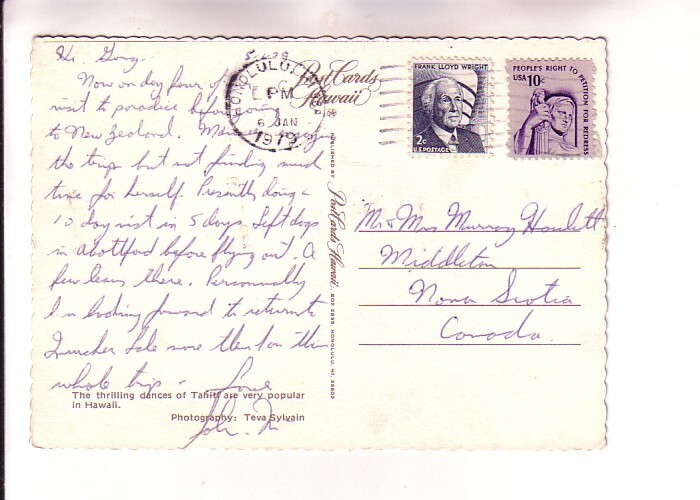 Hi Gary.
Now on day four of
visit to paradise before going
to New Zealand. enjoying
the trip but not finding much
time for herself. Presently doing a
10 day visit in 5 days. Left dogs
in Abottford before flying out. A
few tears there. Personally
I'm looking forward to return to
Lake more than on this
whole trip - Love
John.
The thrilling dances of Tahiti are very popular
in Hawaii.
Photography: Teva Sylvain
HONOLULU, HI
PM
6 JAN
1979
Post Cards
Hawaii
PUBLISHED BY Post Cards Hawaii BOX 2835, HONOLULU, HI. 96803
FRANK LLOYD WRIGHT
2c
U.S. POSTAGE
PEOPLE'S RIGHT TO PETITION FOR REDRESS
USA 10c
Mr & Mrs Murray Howlett
Middleton
Nova Scotia
Canada.